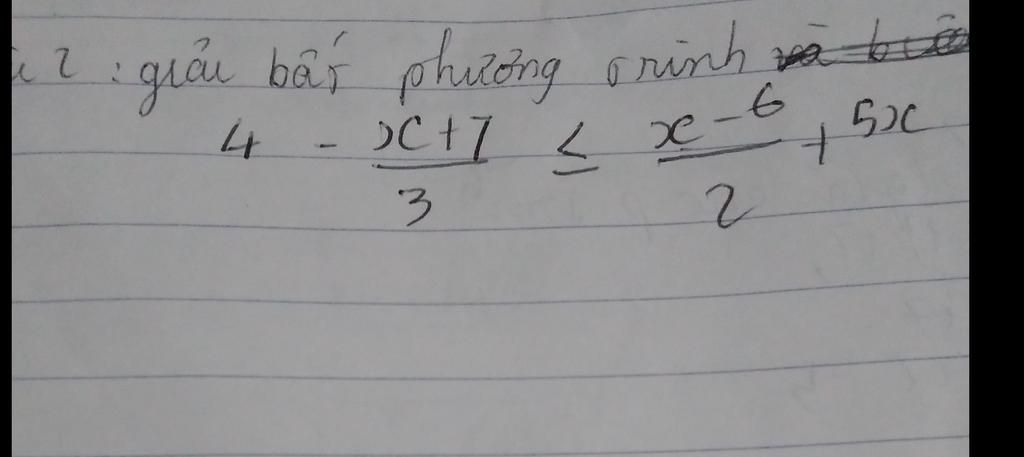 2 : giải bất phương trình
4 - x+7/3 ≤ x-6/2 + 5x